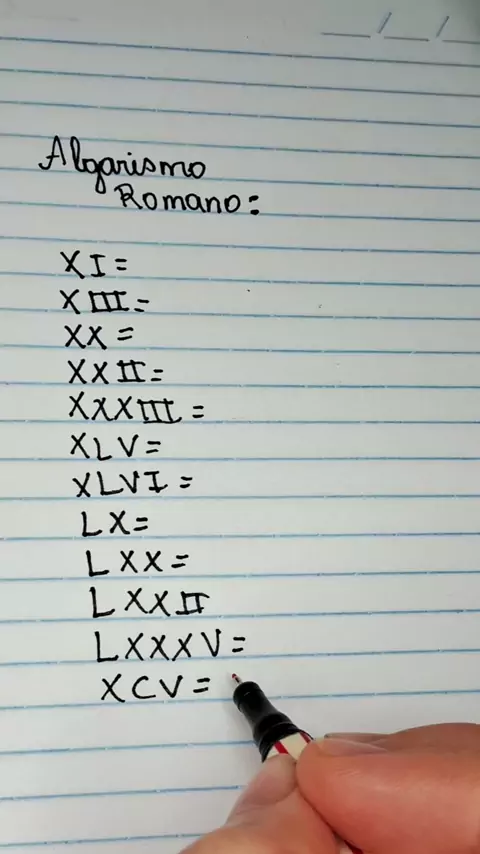 __/__/__
Algarismo
Romano:
XI=
XIII=
XX=
XXII=
XXXIII=
XLV=
XLVI=
LX=
LXX=
LXXII
LXXXV=
XCV=